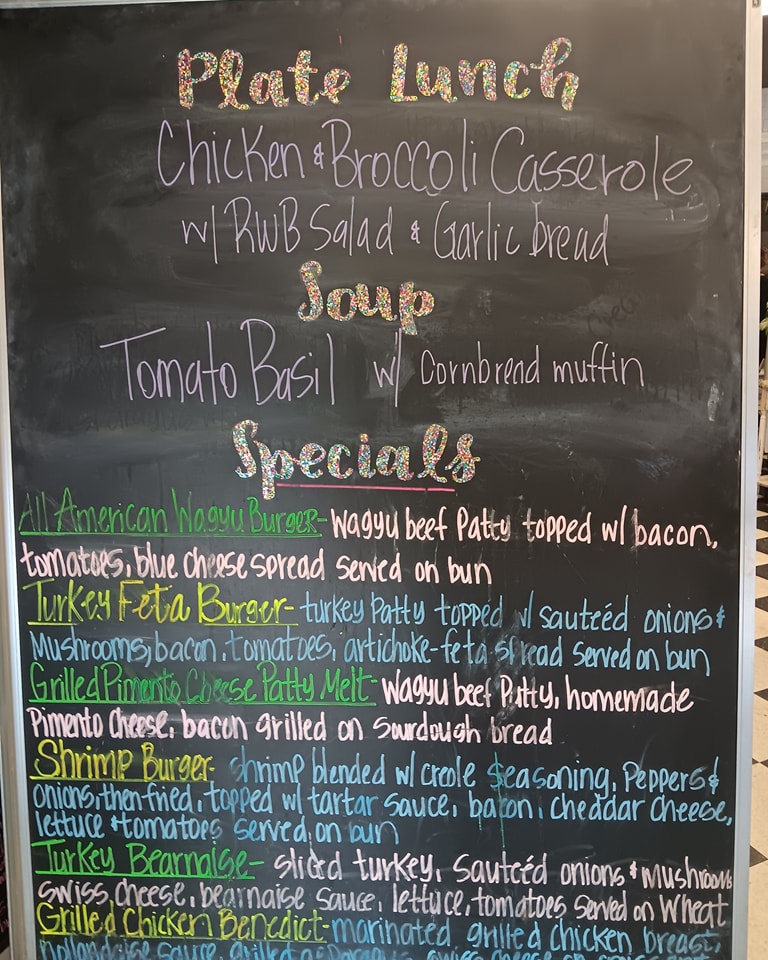 Plate Lunch
Chicken & Broccoli Casserole
w/ RWB Salad & Garlic bread
Soup
Tomato Basil w/ Cornbread muffin
Specials
All American Wagyu Burger- Wagyu beef Patty topped w/ bacon,
tomatoes, blue cheese spread served on bun
Turkey Feta Burger- turkey Patty topped w/ sauteéd onions &
Mushrooms, bacon, tomatoes, artichoke-feta spread served on bun
Grilled Pimento Cheese Patty Melt- Wagyu beef Patty, homemade
Pimento Cheese, bacon grilled on Sourdough bread
Shrimp Burger- shrimp blended w/ creole seasoning, Peppers &
onions, then fried, topped w/ tartar sauce, bacon, cheddar cheese,
lettuce & tomatoes served on bun
Turkey Bearnaise- sliced turkey, Sauteéd onions & Mushrooms
swiss cheese, bearnaise sauce, lettuce, tomatoes served on Wheat
Grilled Chicken Benedict- marinated grilled chicken breast,
hollandaise sauce, grilled asparagus, swiss cheese on